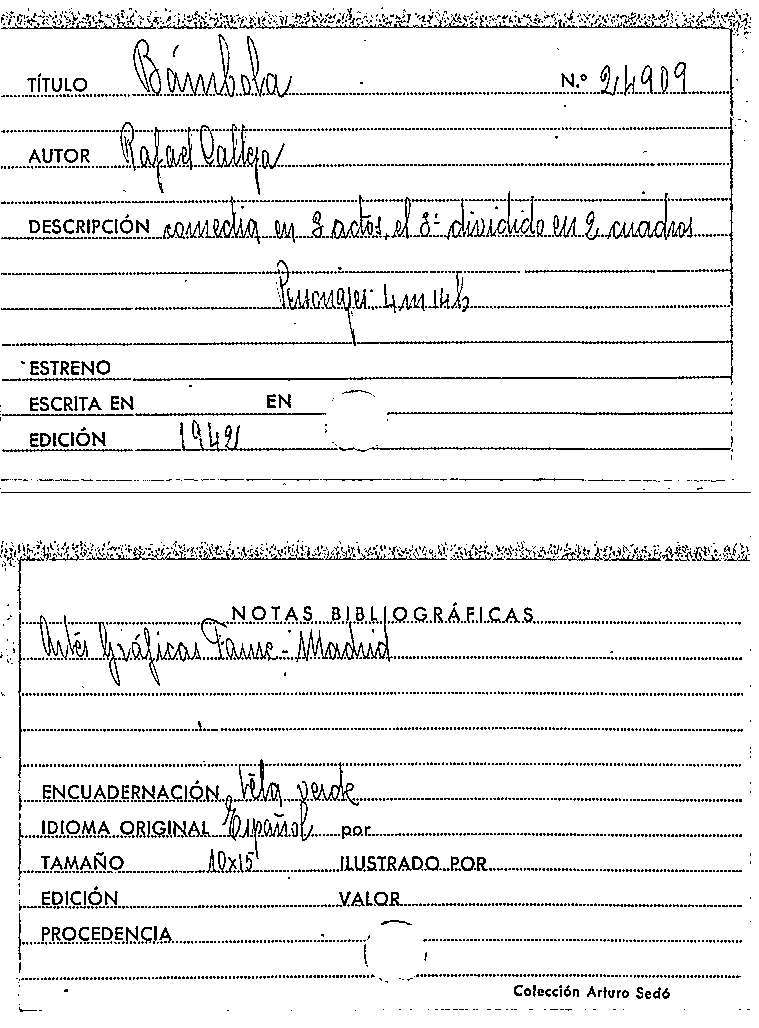 TÍTULO Bámbola N.º 24909
AUTOR Rafael Calleja
DESCRIPCIÓN comedia en 3 actos, el 3º dividido en 2 cuadros
Personajes: 4 m 14 h
ESTRENO
ESCRITA EN EN
EDICIÓN 1942
NOTAS BIBLIOGRÁFICAS
Artes Gráficas Faure - Madrid
ENCUADERNACIÓN tela verde
IDIOMA ORIGINAL Español por
TAMAÑO 10x15 ILUSTRADO POR
EDICIÓN VALOR
PROCEDENCIA
Colección Arturo Sedó